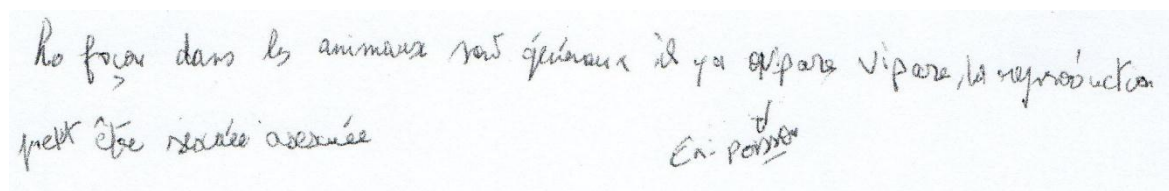 La façon dans les animaux sont généraux il ya ovipare vipare, la reproduction
peut être sexuée asexuée
Ex: poisson